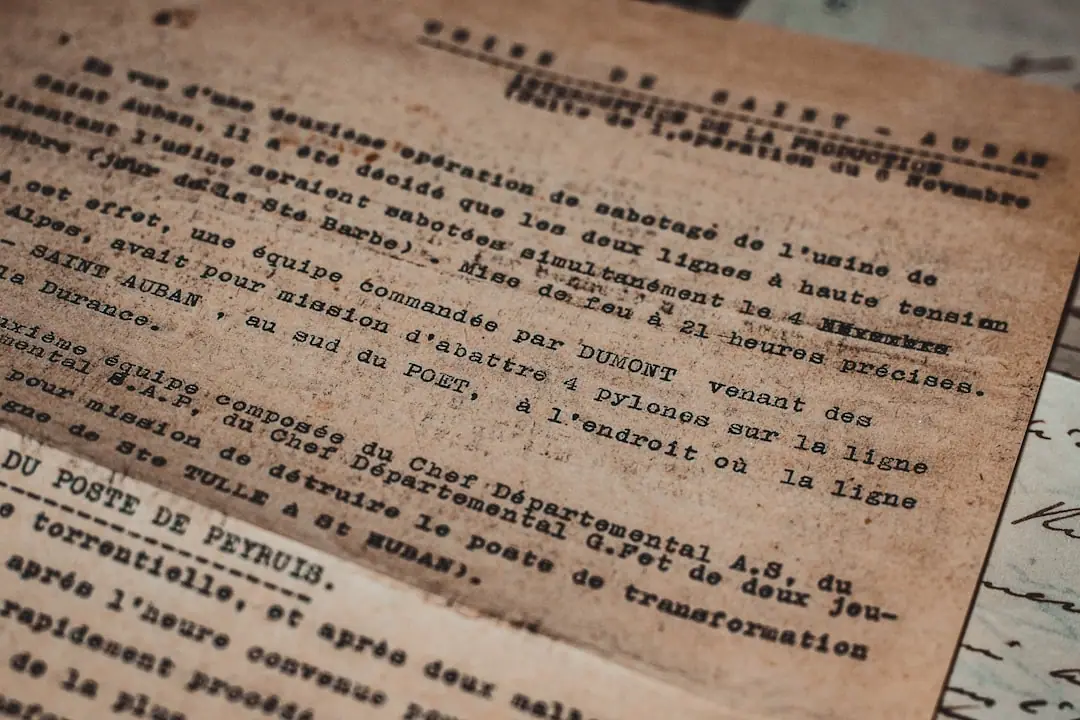 DE SAINT - AUBAN
DE LA PRODUCTION
(Suite de l'opération du 6 Novembre
En vue d'une deuxième opération de sabotage de l'usine de
Saint Auban, il a été décidé que les deux lignes à haute tension
limentant l'usine seraient sabotées simultanément le 4
embre (jour de la Sté Barbe). Mise de feu à 21 heures précises.
A cet effet, une équipe commandée par DUMONT venant des
Alpes, avait pour mission d'abattre 4 pylones sur la ligne
- SAINT AUBAN , au sud du POET, à l'endroit où la ligne
la Durance.
uxième équipe composée du Chef Départemental A.S. du
mental S.A.P. du Chef Départemental G.Fet de deux jou-
pour mission de détruire le poste de transformation
igne de Ste TULLE à St AUBAN).
DU POSTE DE PEYRUIS.
e torrentielle, et après deux
aprés l'heure convenue
rapidement procédé
de la plus